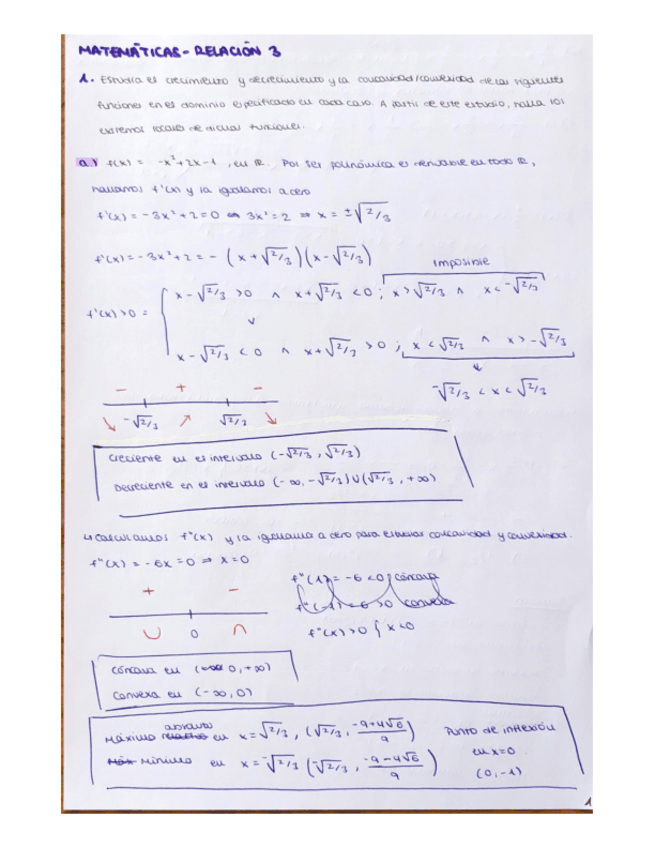 MATEMÁTICAS - RELACIÓN 3
1. Estudia el crecimiento y decrecimiento y la concavidad/convexidad de las siguientes
funciones en el dominio especificado en cada caso. A partir de este estudio, halla los
extremos locales de dichas funciones.
a.) f(x) = -x³+2x-1 , en ℝ. Por ser polinómica es derivable en todo ℝ,
hallamos f'(x) y la igualamos a cero
f'(x) = -3x²+2=0 ⇔ 3x²=2 ⇒ x = ±√2/3
f'(x) = -3x²+2 = - (x+√2/3)(x-√2/3)
Imposible
x-√2/3 >0 ∧ x+√2/3 <0 ; x>√2/3 ∧ x<-√2/3
f'(x)>0 = {
∨
x-√2/3 <0 ∧ x+√2/3 >0 ; x<√2/3 ∧ x>-√2/3
-√2/3 < x < √2/3
- + -
↘ -√2/3 ↗ √2/3 ↘
Creciente en el intervalo (-√2/3, √2/3)
Decreciente en el intervalo (-∞, -√2/3)∪(√2/3, +∞)
↳ Calculamos f''(x) y la igualamos a cero para estudiar concavidad y convexidad.
f''(x) = -6x = 0 ⇒ x=0
f''(1) = -6 <0 cóncava
f''(-1) = 6 >0 convexa
f''(x) >0 { x<0
+ -
∪ 0 ∩
Cóncava en (0, +∞)
Convexa en (-∞, 0)
Máximo relativo absoluto en x=√2/3, (√2/3, -9+4√6/9)
Máx Mínimo en x=-√2/3 (-√2/3, -9-4√6/9)
Punto de inflexión
en x=0
(0,-1)
1